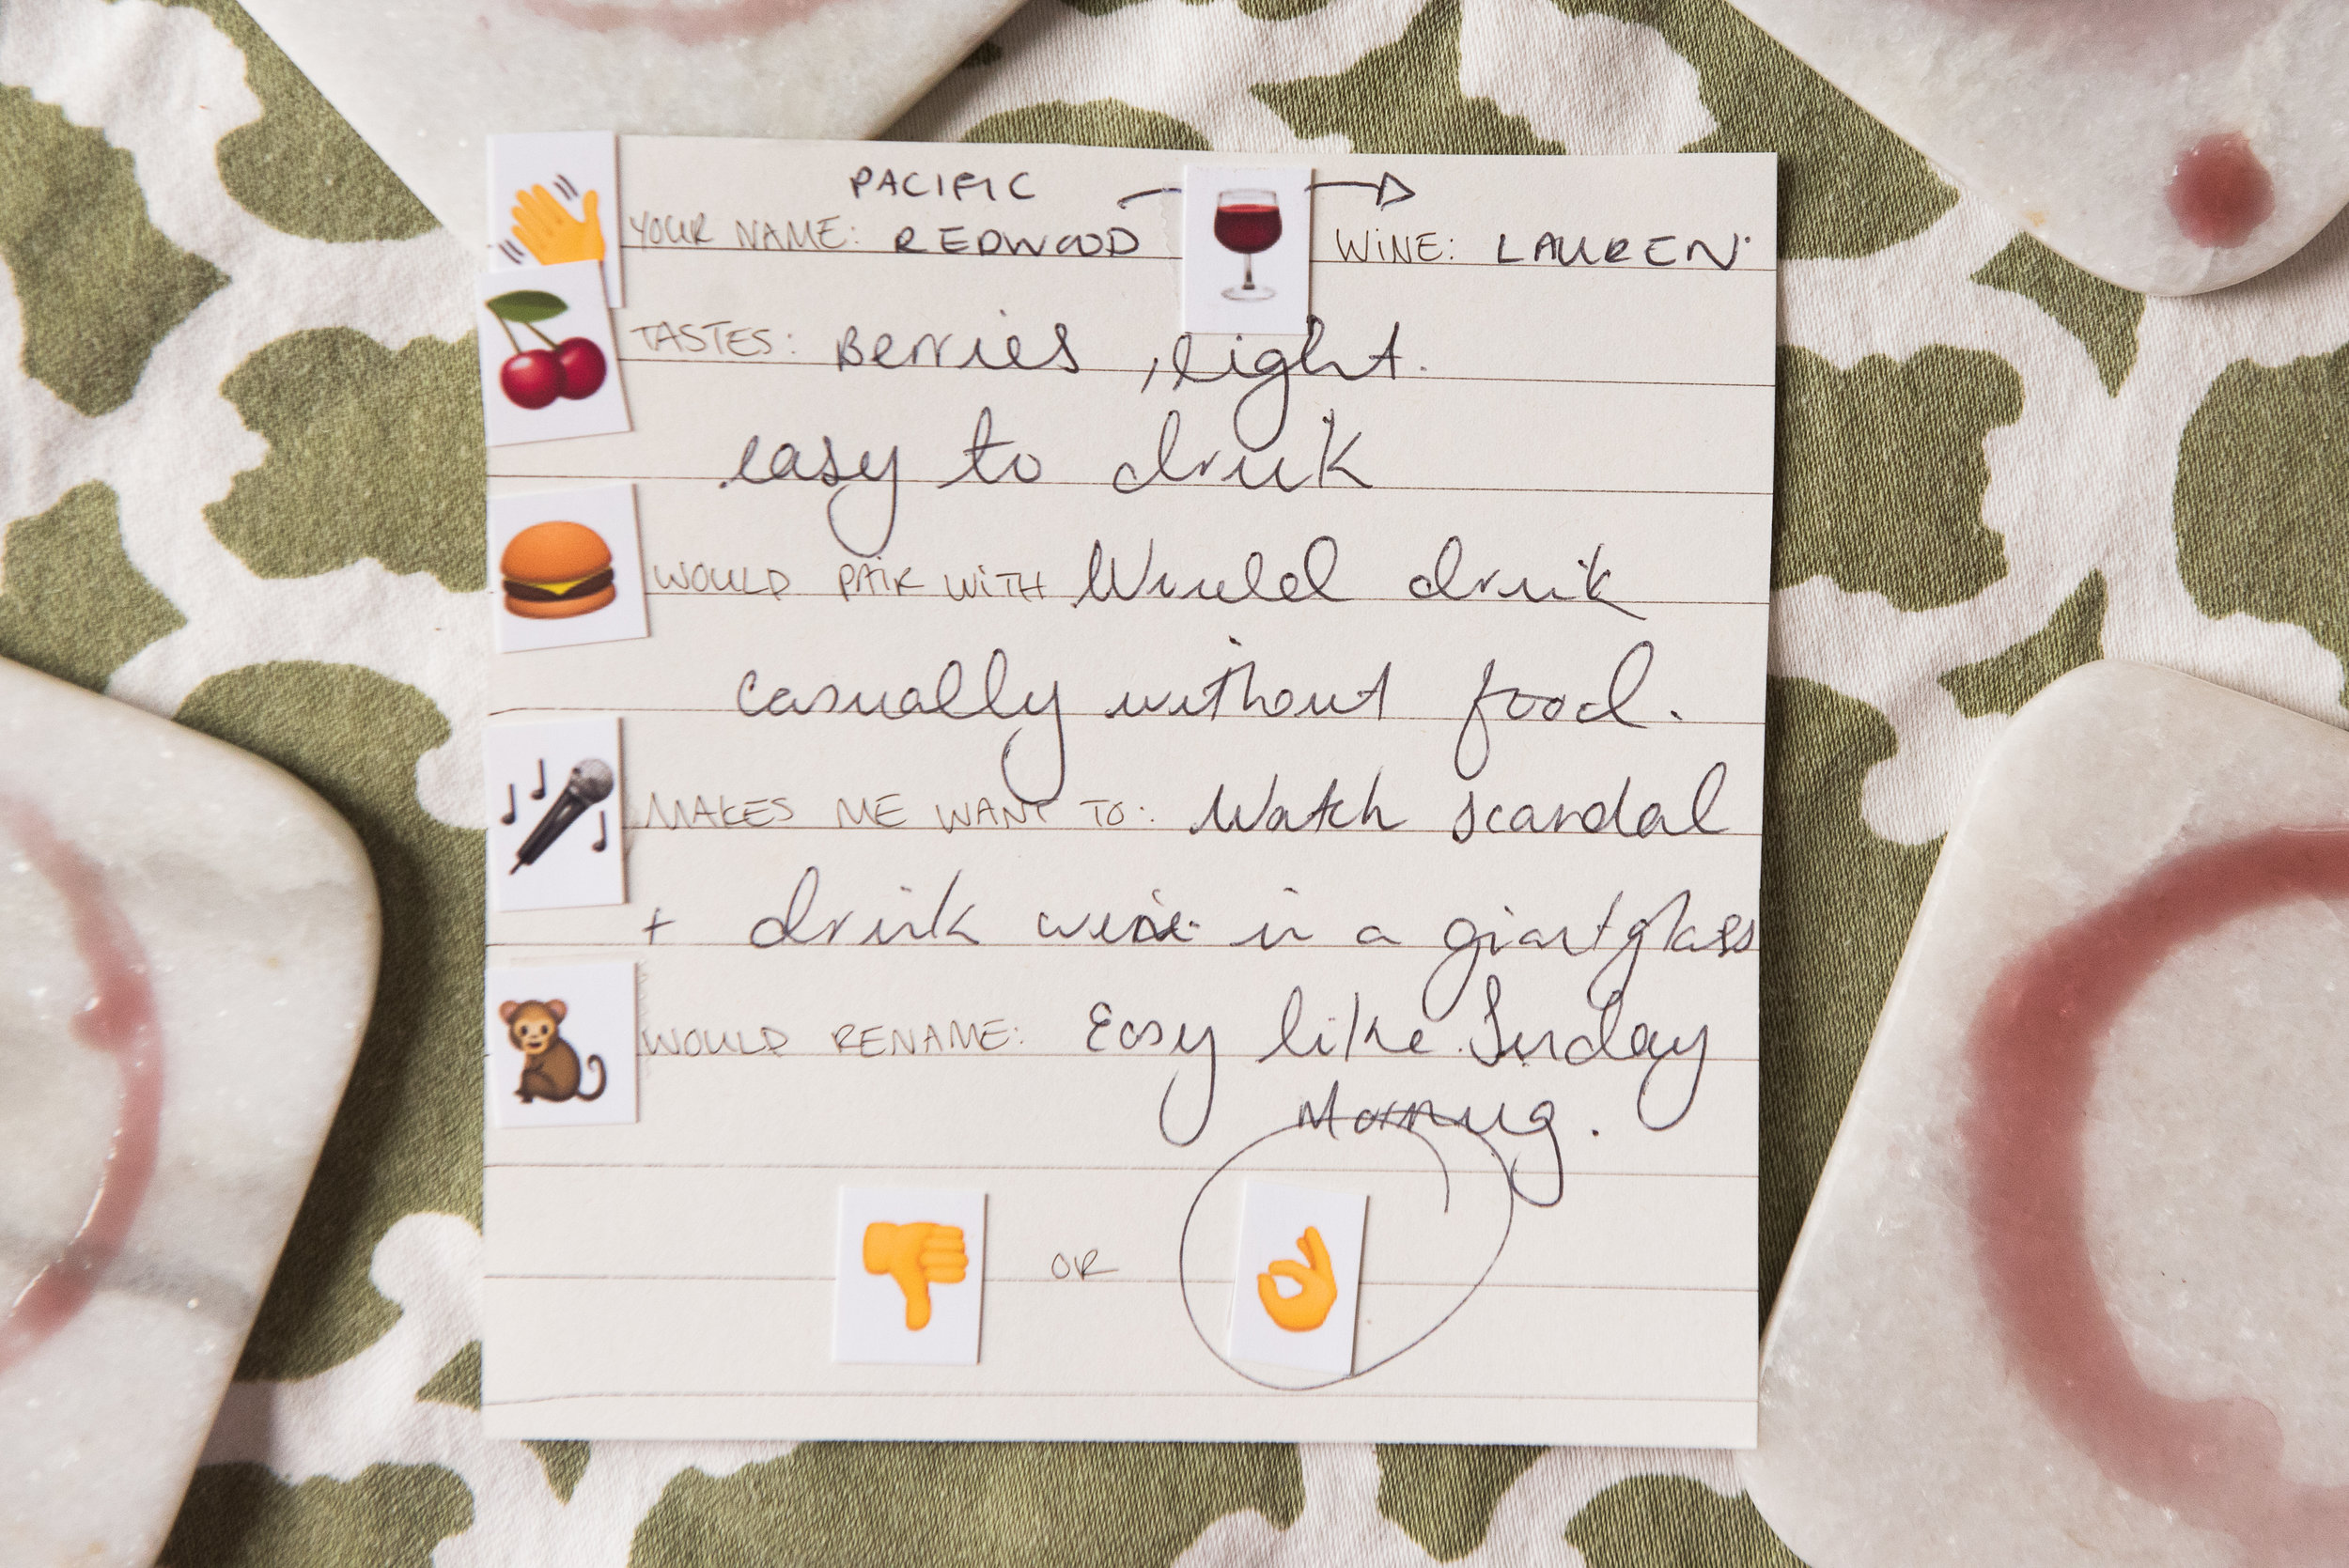 PACIFIC
YOUR NAME: REDWOOD WINE: LAUREN
TASTES: Berries, light.
easy to drink
WOULD PAIR WITH Would drink
casually without food.
MAKES ME WANT TO: Watch scandal
+ drink wine in a giant glass
WOULD RENAME: Easy like Sunday
Morning.
OR